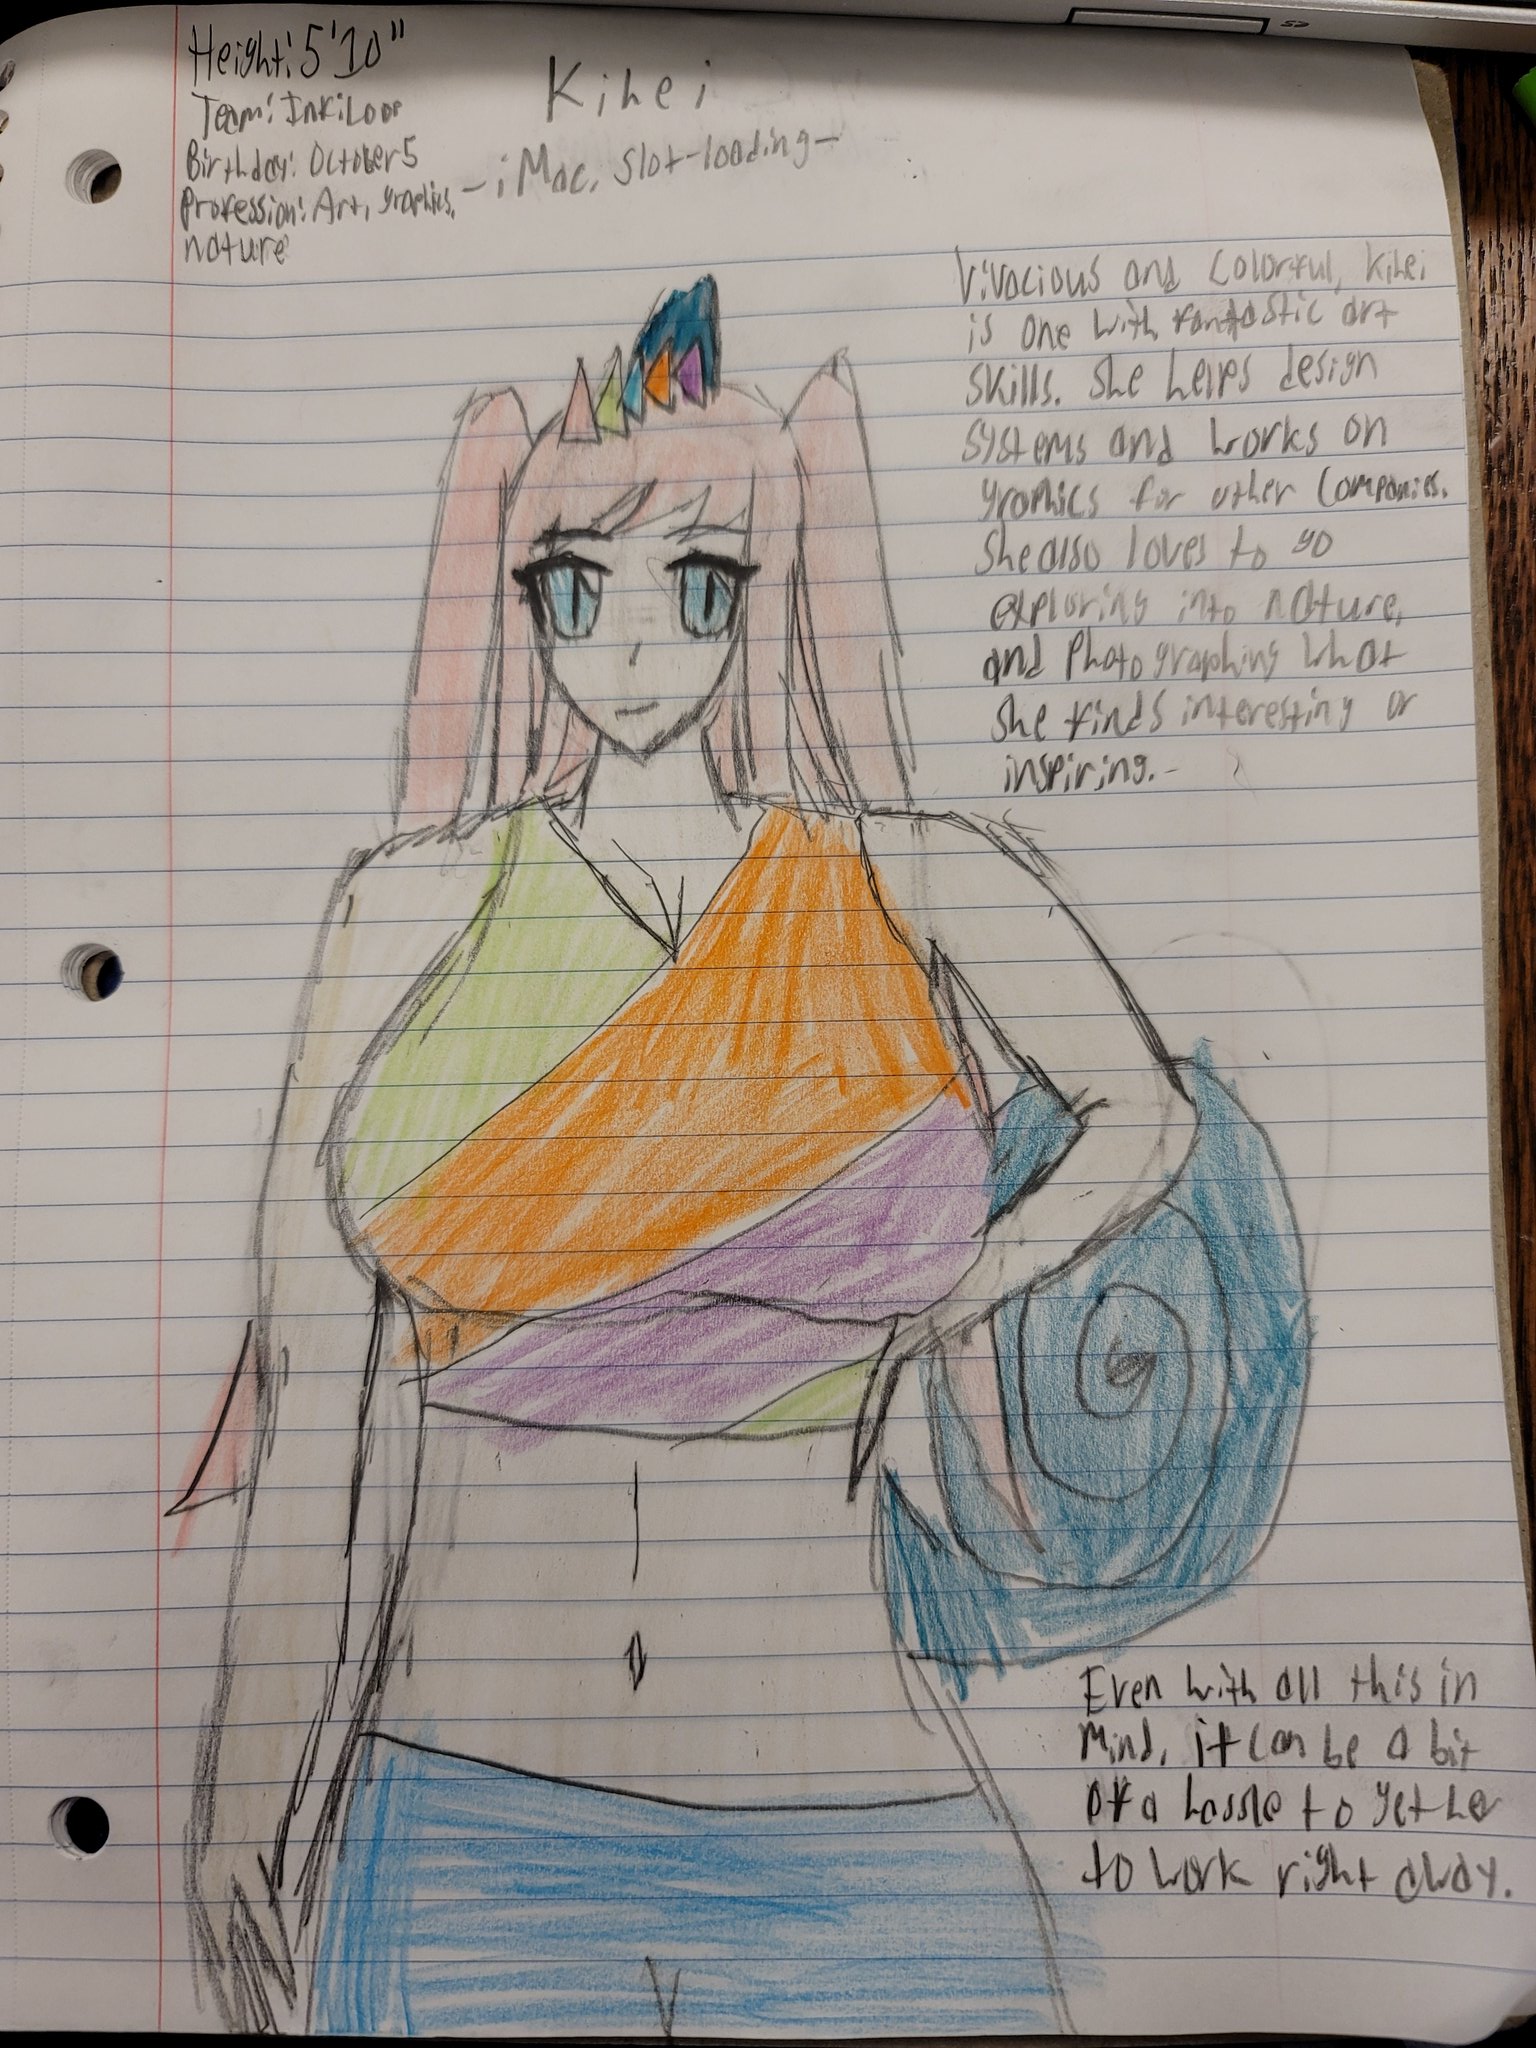 Height: 5'10"
Team: InkiLoop
Birthday: October 5
Profession: Art, graphics,
nature
Kihei
-iMac, Slot-loading-
Vivacious and Colorful, Kihei
is one with fantastic art
skills. She helps design
systems and works on
graphics for other Companies.
She also loves to go
exploring into nature,
and Photographing what
she finds interesting or
inspiring.-
Even with all this in
Mind, it can be a bit
of a hassle to get her
to work right away.